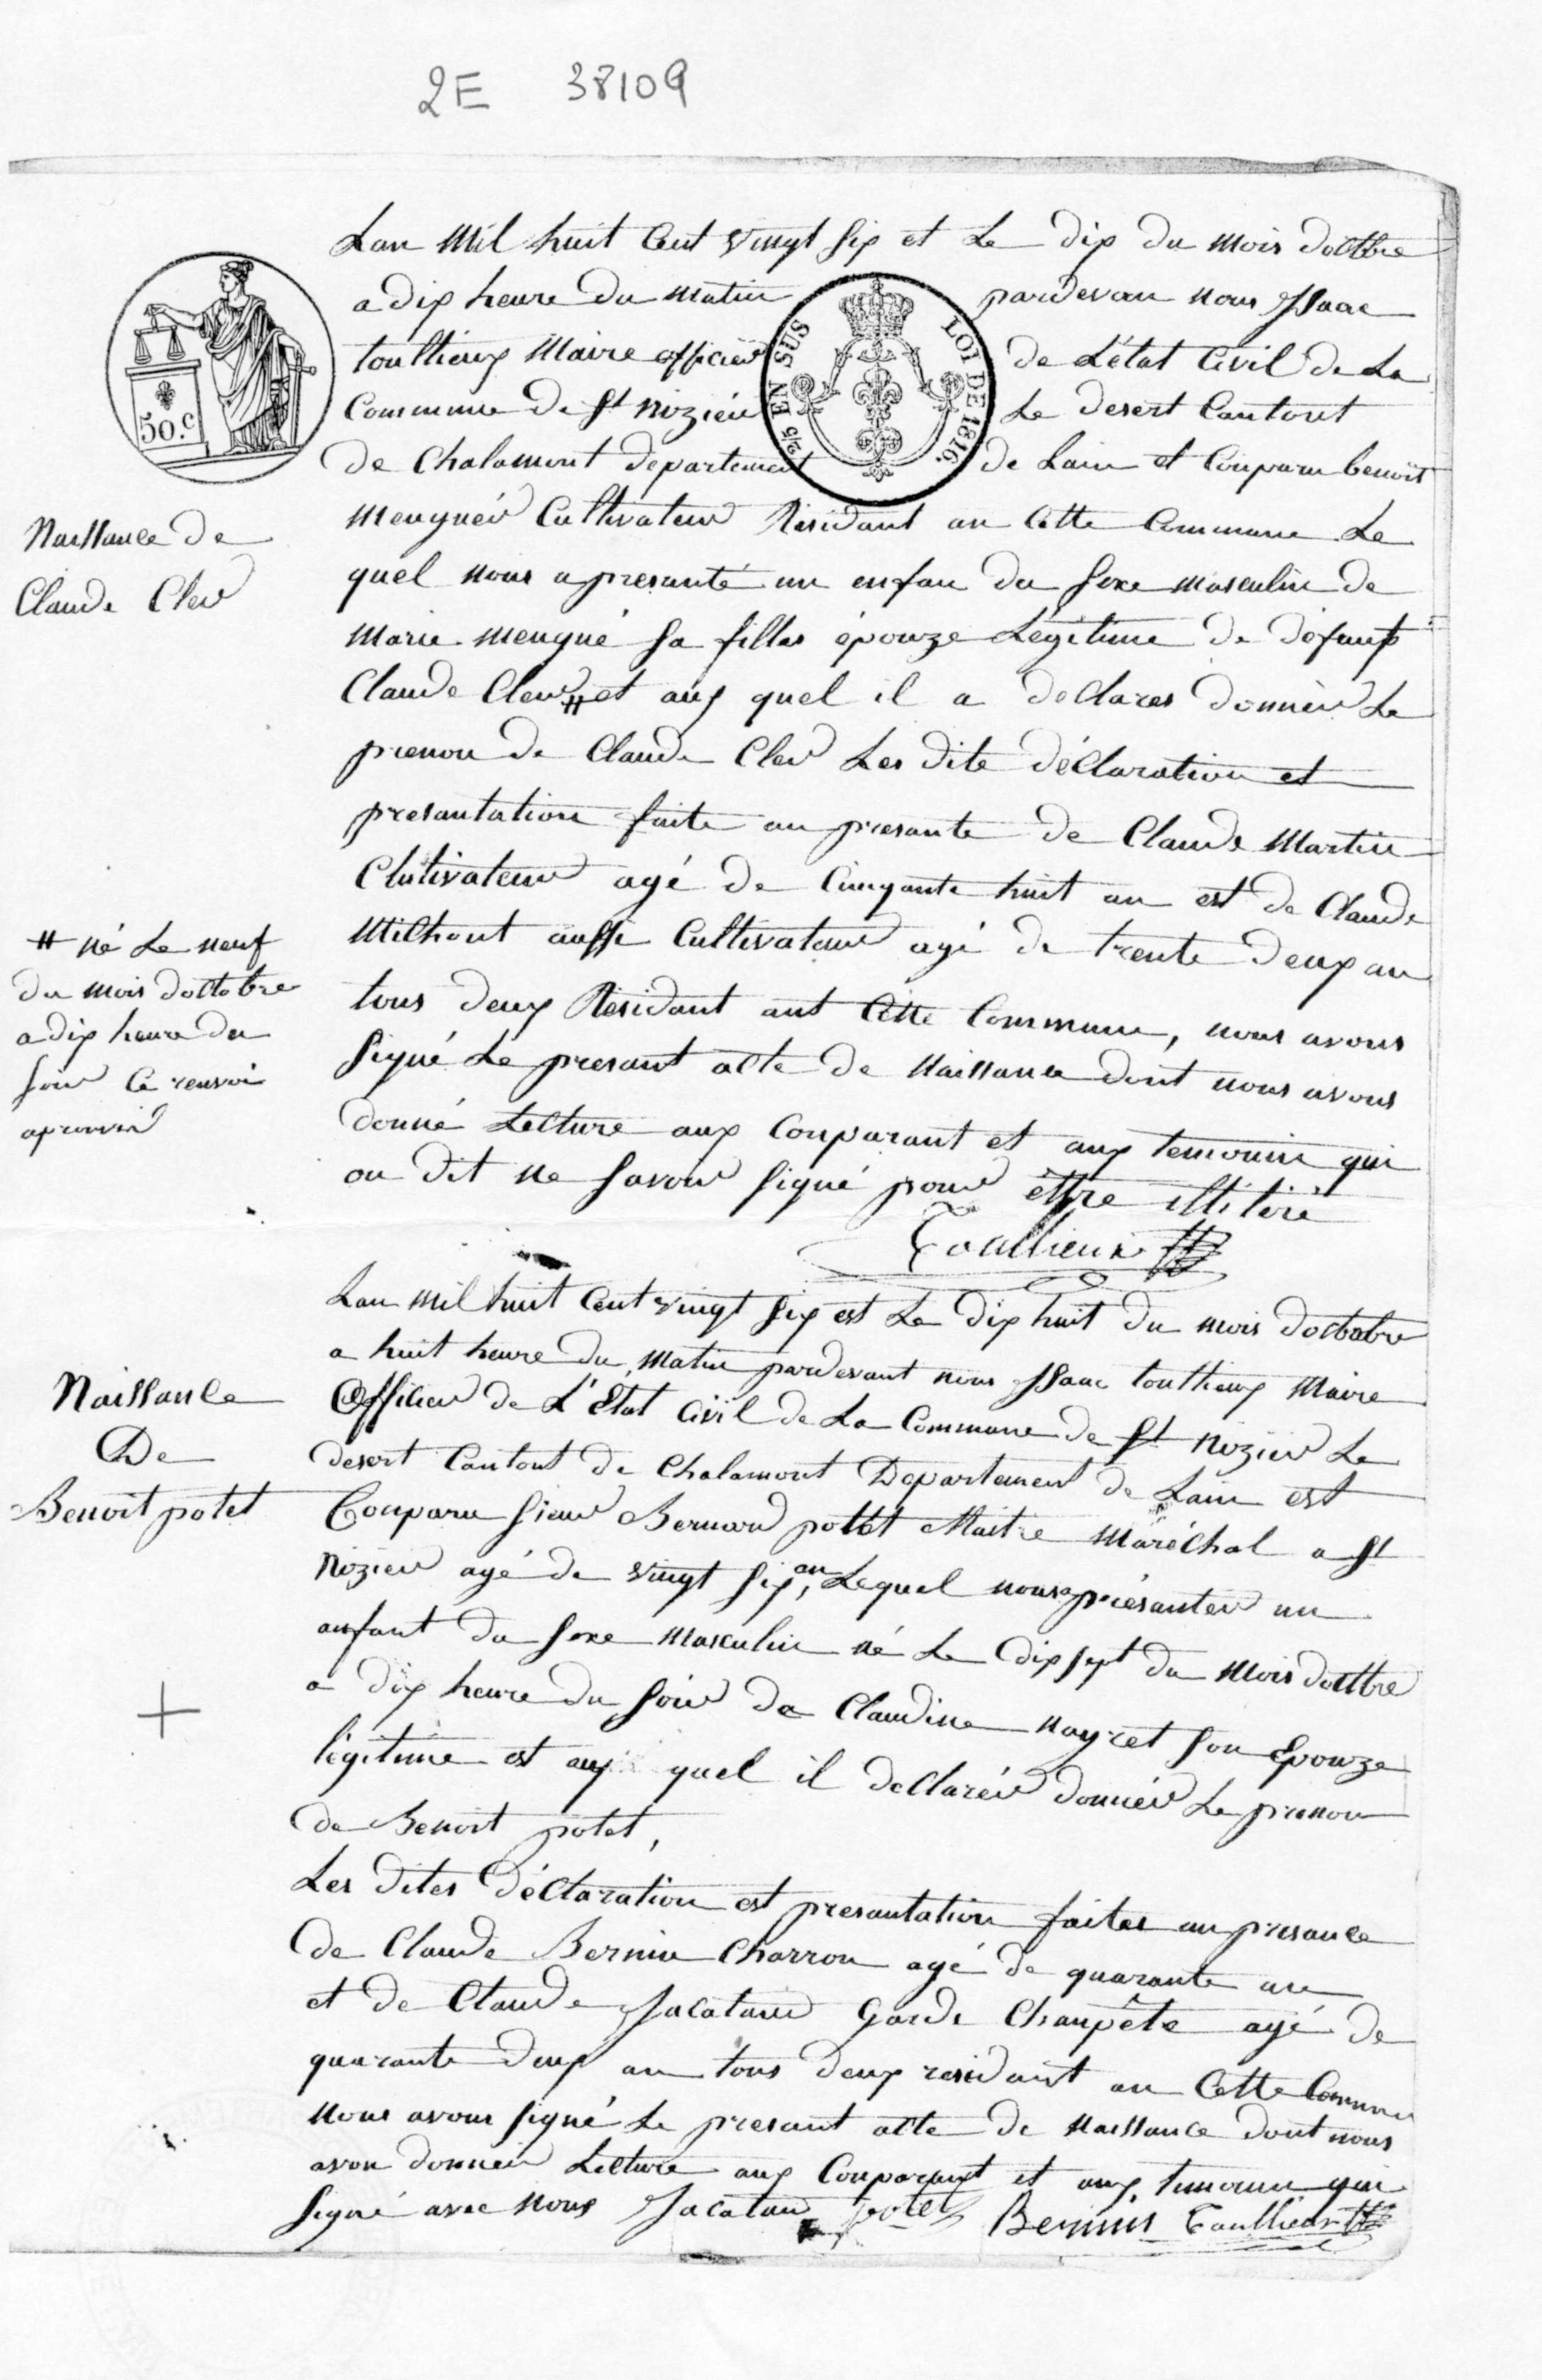 2E 38109
Lan Mil huit Cent Vingt six et Le dix du mois doctbre
a dix heure du matin pardevan nous Isaac
toullieux Maire officier de L'état Civil de La
Commune de St nizier Le desert Cantont
de Chalamont departement de Lain et Comparu benoit
50.C
2/5 EN SUS LOI DE 1816.
Naissance de
Claude Cler
meugnér Cultivateur Résidant an Cette Commune Le
quel nous a presanté un enfan du sexe masculin de
Marie meugné sa filles épouze Legitime de défunt
Claude Cler # et aux quel il a declares donnér Le
prenon de Claude Cler Les dite déClaration et
presantation faite an presante de Claude Martin
Clutivateur agé de Cinqante huit an est de Claude
Milhout aussi Cultivateur agé de trente deux an
tous deux Résidant ant Cette Commune, nous avons
signé Le presant acte de Naissance dont nous avons
donné Lecture aux Conparant et aux temouin qui
on dit ne savoir signé pour êttre illitéré
# né Le neuf
du mois doctobre
a dix heure du
soir Ce renvoi
aprouvér
Toullieux
Lan mil huit Cent vingt six est Le dix huit du mois doctobre
a huit heure du matin pardevant nous Isaac toullieux Maire
Officier de L'État Civil de La Commune de St Nizier Le
desert Cantont de Chalamont Departement de Lain est
Conparu sieur Bernard pottet Maitre Maréchal a St
Nizier agé de vingt six an, Lequel nous a présanter un
anfant du sexe masculin né Le dix sept du Mois doctbre
a dix heure du soir de Claudine nayret son Epouze
légitime est aux quel il declarér donnér Le prenon
de Benoit potet,
Naissance
De
Benoit potet
Les dites déClaration est presantation faites an presance
de Claude Bernin Charron agé de quarante an
et de Claude Jacatau Garde Chanpête agé de
quarante deux an tous deux residant an Cette Commune
Nous avons signé Le presant acte de naissance dont nous
avon donnér Lecture aux Conparant et aux temouin qui
signé avec nous Jacatau potet Bernin Toullieux